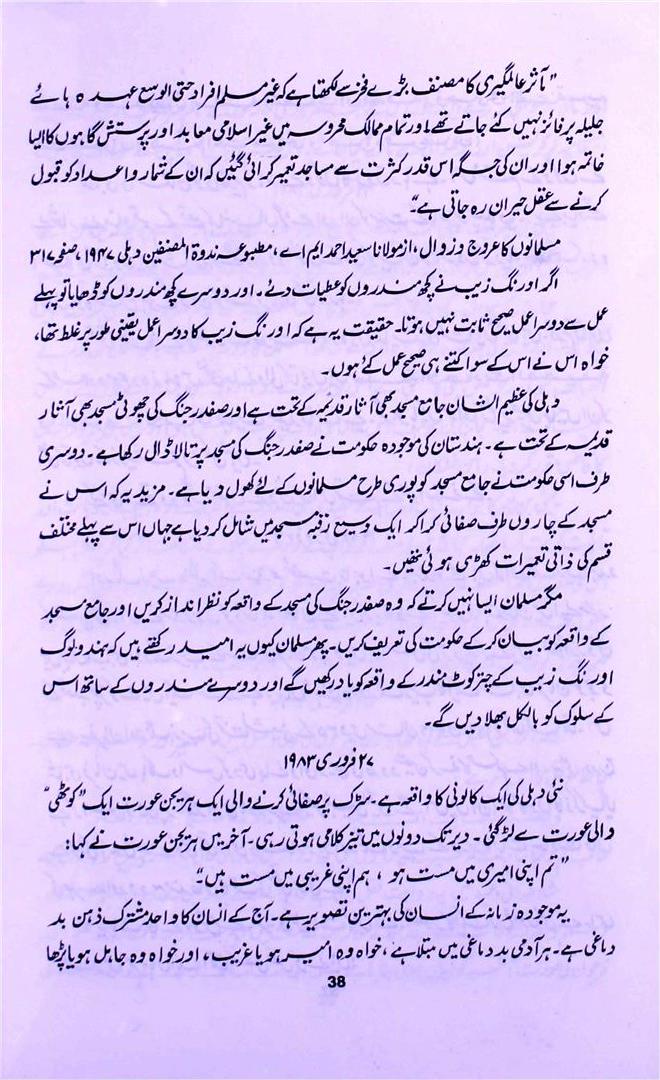 "مآثر عالمگیری کا مصنف بڑے فخر سے لکھتا ہے کہ غیر مسلم افراد حتی الوسع عہدہ ہائے
جلیلہ پر فائز نہیں کئے جاتے تھے اور تمام ممالک محروسہ میں غیر اسلامی معابد اور پرستش گاہوں کا ایسا
خاتمہ ہوا اور ان کی جگہ اس قدر کثرت سے مساجد تعمیر کرائی گئیں کہ ان کے شمار و اعداد کو قبول
کرنے سے عقل حیران رہ جاتی ہے"۔
مسلمانوں کا عروج و زوال، از مولانا سعید احمد ایم اے، مطبوعہ ندوۃ المصنفین دہلی ۱۹۴۷، صفحہ ۳۱۷
اگر اورنگ زیب نے کچھ مندروں کو عطیات دئے۔ اور دوسرے کچھ مندروں کو ڈھایا تو پہلے
عمل سے دوسرا عمل صحیح ثابت نہیں ہوتا۔ حقیقت یہ ہے کہ اورنگ زیب کا دوسرا عمل یقینی طور پر غلط تھا،
خواہ اس نے اس کے سوا کتنے ہی صحیح عمل کئے ہوں۔
دہلی کی عظیم الشان جامع مسجد بھی آثار قدیمہ کے تحت ہے اور صفدر جنگ کی چھوٹی مسجد بھی آثار
قدیمہ کے تحت ہے۔ ہندستان کی موجودہ حکومت نے صفدر جنگ کی مسجد پر تالا ڈال رکھا ہے۔ دوسری
طرف اسی حکومت نے جامع مسجد کو پوری طرح مسلمانوں کے لئے کھول دیا ہے۔ مزید یہ کہ اس نے
مسجد کے چاروں طرف صفائی کراکر ایک وسیع رقبہ مسجد میں شامل کر دیا ہے جہاں اس سے پہلے مختلف
قسم کی ذاتی تعمیرات کھڑی ہوئی تھیں۔
مگر مسلمان ایسا نہیں کرتے کہ وہ صفدر جنگ کی مسجد کے واقعہ کو نظر انداز کریں اور جامع مسجد
کے واقعہ کو بیان کر کے حکومت کی تعریف کریں۔ پھر مسلمان کیوں یہ امید رکھتے ہیں کہ ہندو لوگ
اورنگ زیب کے چتر کوٹ مندر کے واقعہ کو یاد رکھیں گے اور دوسرے مندروں کے ساتھ اس
کے سلوک کو بالکل بھلا دیں گے۔
۲۷ فروری ۱۹۸۳
نئی دہلی کی ایک کالونی کا واقعہ ہے۔ سڑک پر صفائی کرنے والی ایک ہریجن عورت ایک "کوٹھی"
والی عورت سے لڑ گئی۔ دیر تک دونوں میں تیز کلامی ہوتی رہی۔ آخر میں ہریجن عورت نے کہا:
"تم اپنی امیری میں مست ہو، ہم اپنی غریبی میں مست ہیں"۔
یہ موجودہ زمانہ کے انسان کی بہترین تصویر ہے۔ آج کے انسان کا واحد مشترک ذہن بد
دماغی ہے۔ ہر آدمی بد دماغی میں مبتلا ہے، خواہ وہ امیر ہو یا غریب، اور خواہ وہ جاہل ہو یا پڑھا
38